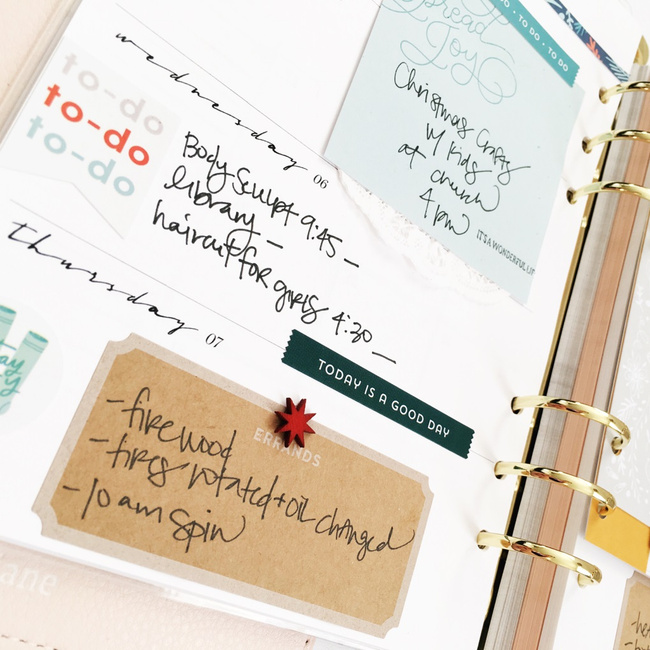 Spread
Joy
TO DO • TO DO • TO DO
Christmas Crafts
w/ Kids
at church
4pm
IT'S A WONDERFUL
wednesday 06
to-do
to-do
to-do
Body Sculpt 9:45 –
library –
haircut for girls 4:30 –
thursday 07
TODAY IS A GOOD DAY
ERRANDS
-firewood
-tires rotated + oil changed
-10am Spin